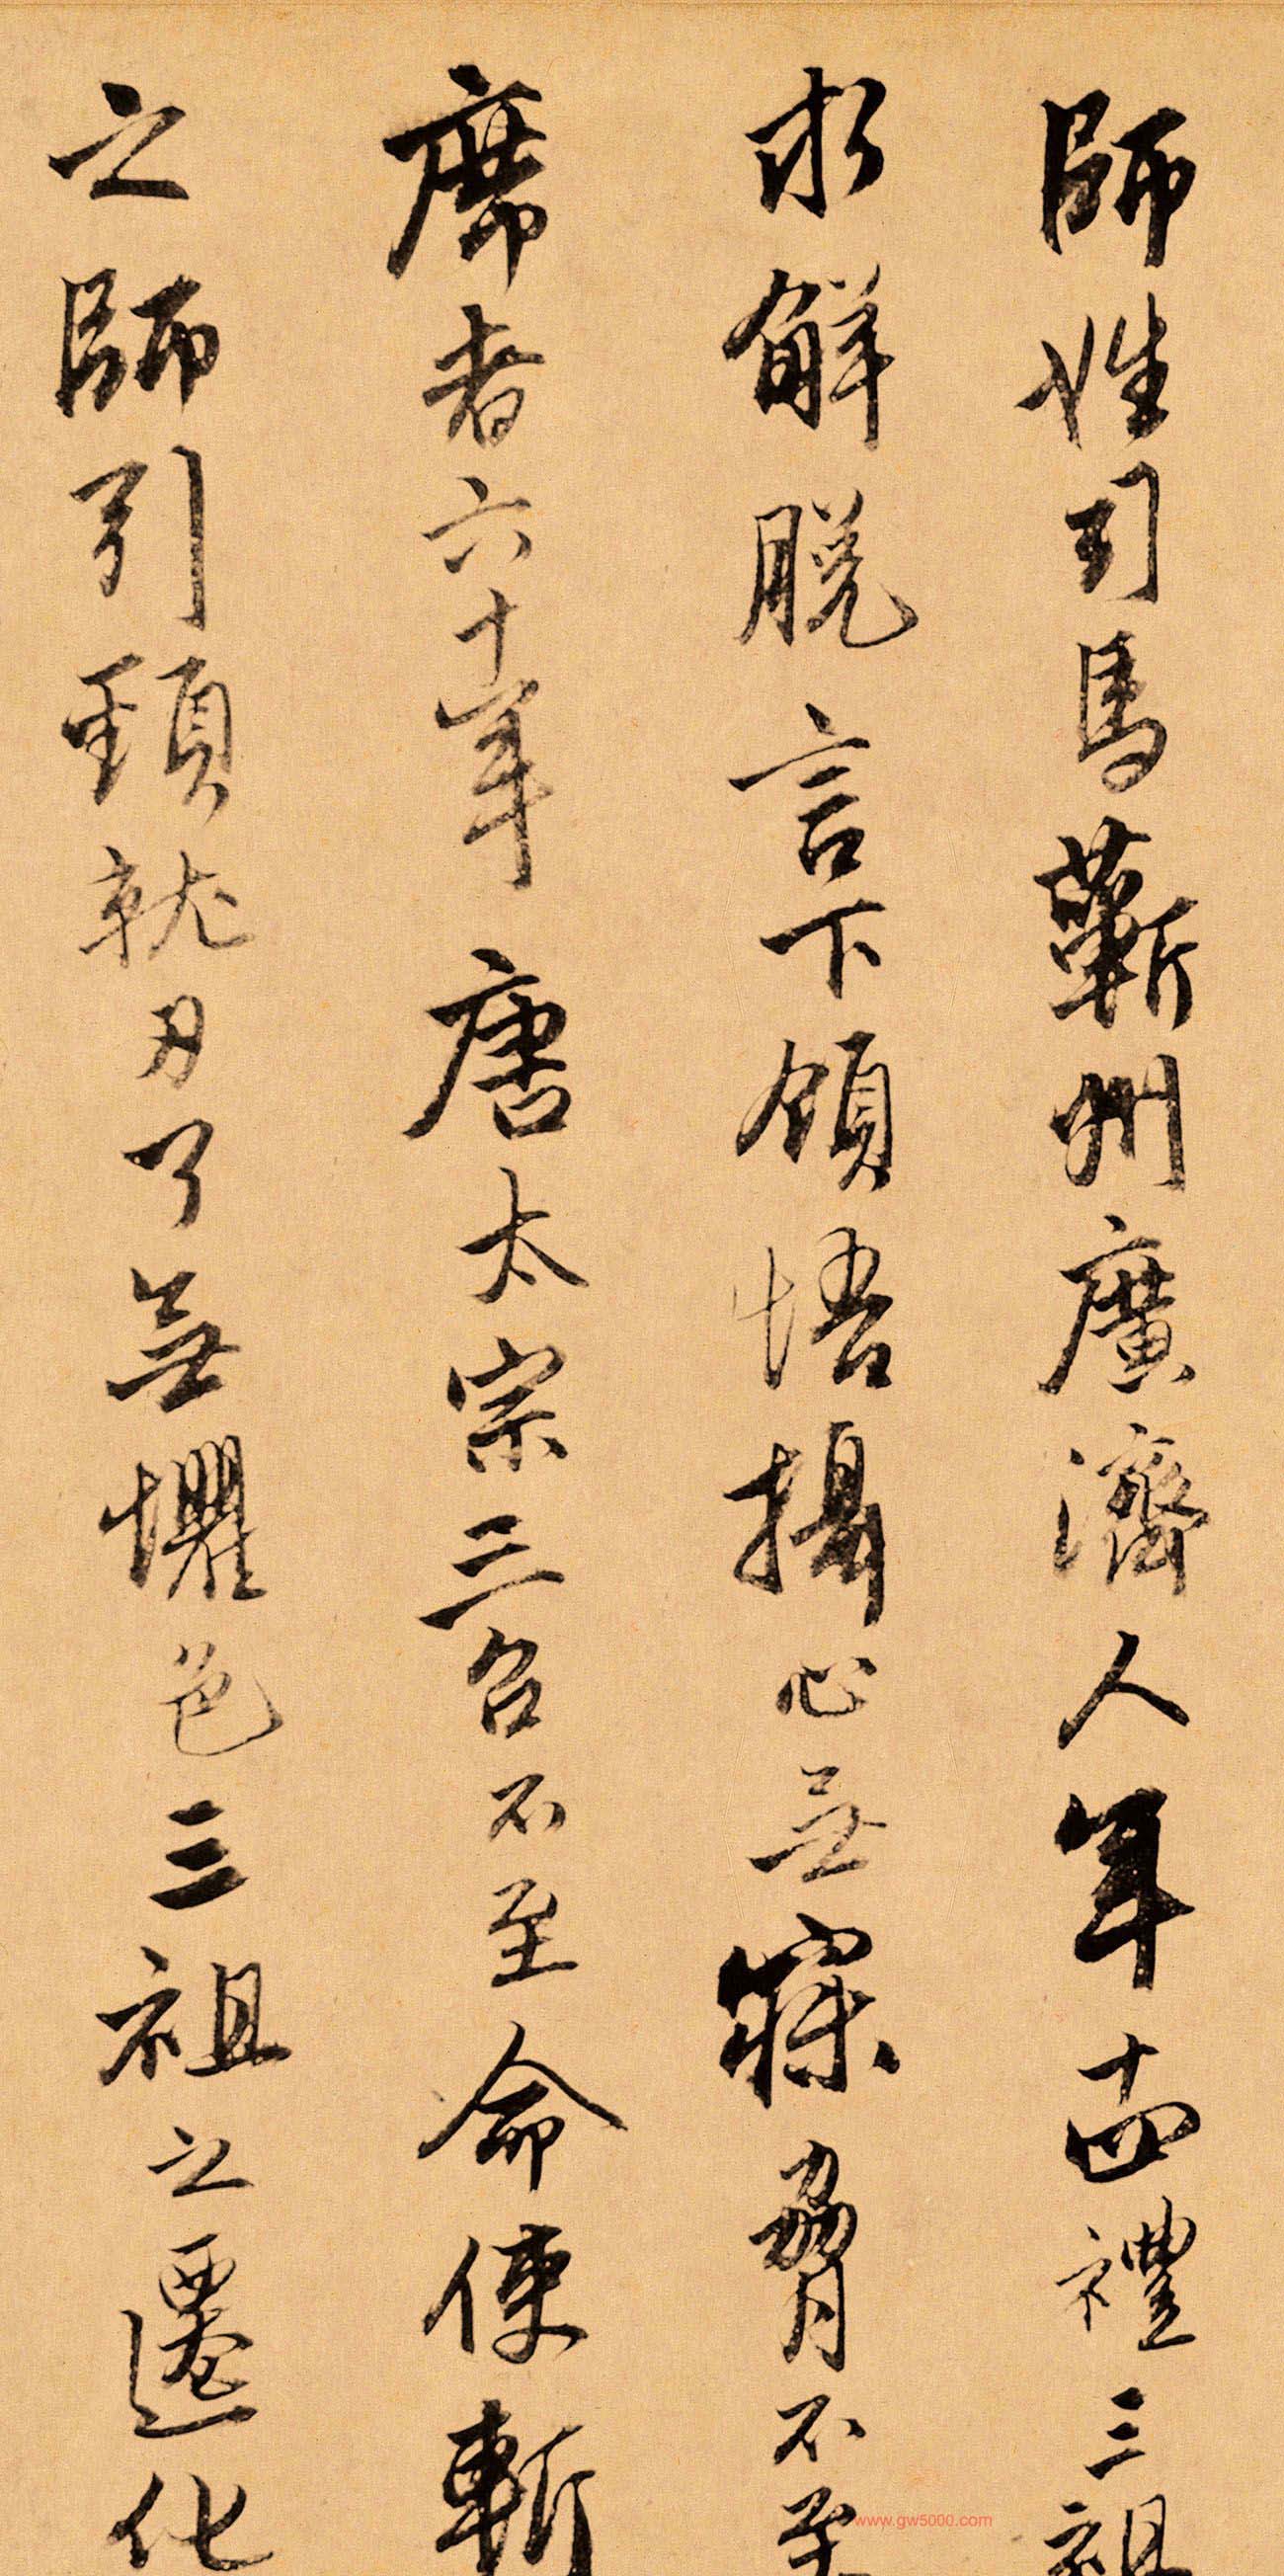 師姓司馬蘄州廣濟人年十四禮三祖
求解脫言下領悟攝心無寐脅不至
席者六十年唐太宗三召不至命使斬
之師引頸就刃了無懼色三祖之遷化
www.gw5000.com